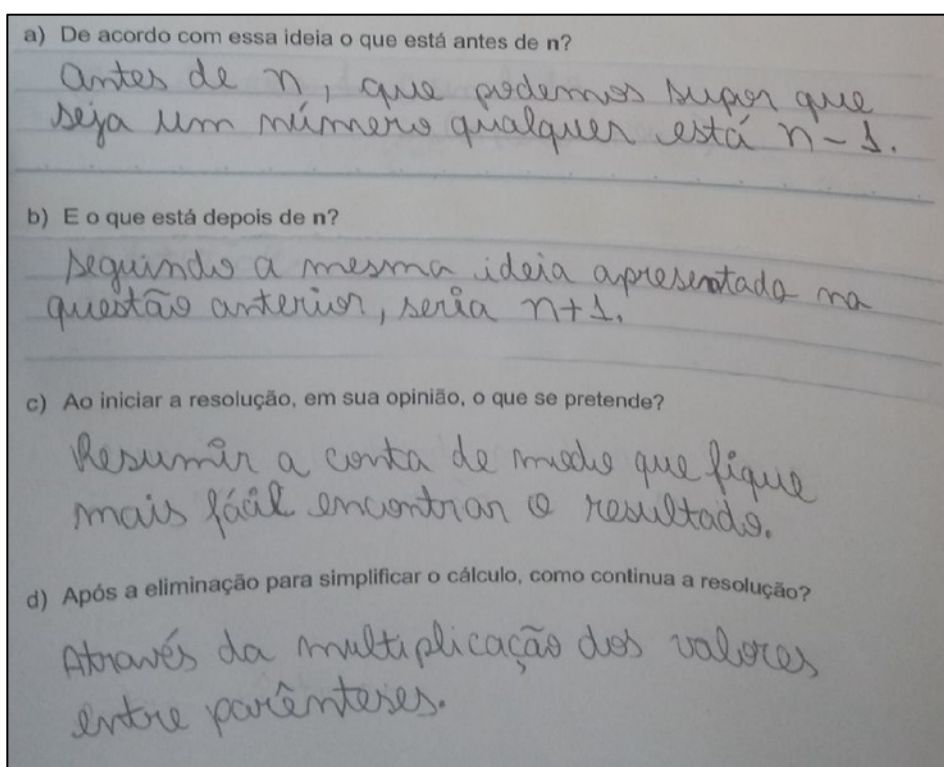 a) De acordo com essa ideia o que está antes de n?
Antes de n, que podemos supor que
seja um número qualquer está n-1.
b) E o que está depois de n?
Seguindo a mesma ideia apresentada na
questão anterior, seria n+1.
c) Ao iniciar a resolução, em sua opinião, o que se pretende?
Resumir a conta de modo que fique
mais fácil encontrar o resultado.
d) Após a eliminação para simplificar o cálculo, como continua a resolução?
Através da multiplicação dos valores
entre parênteses.